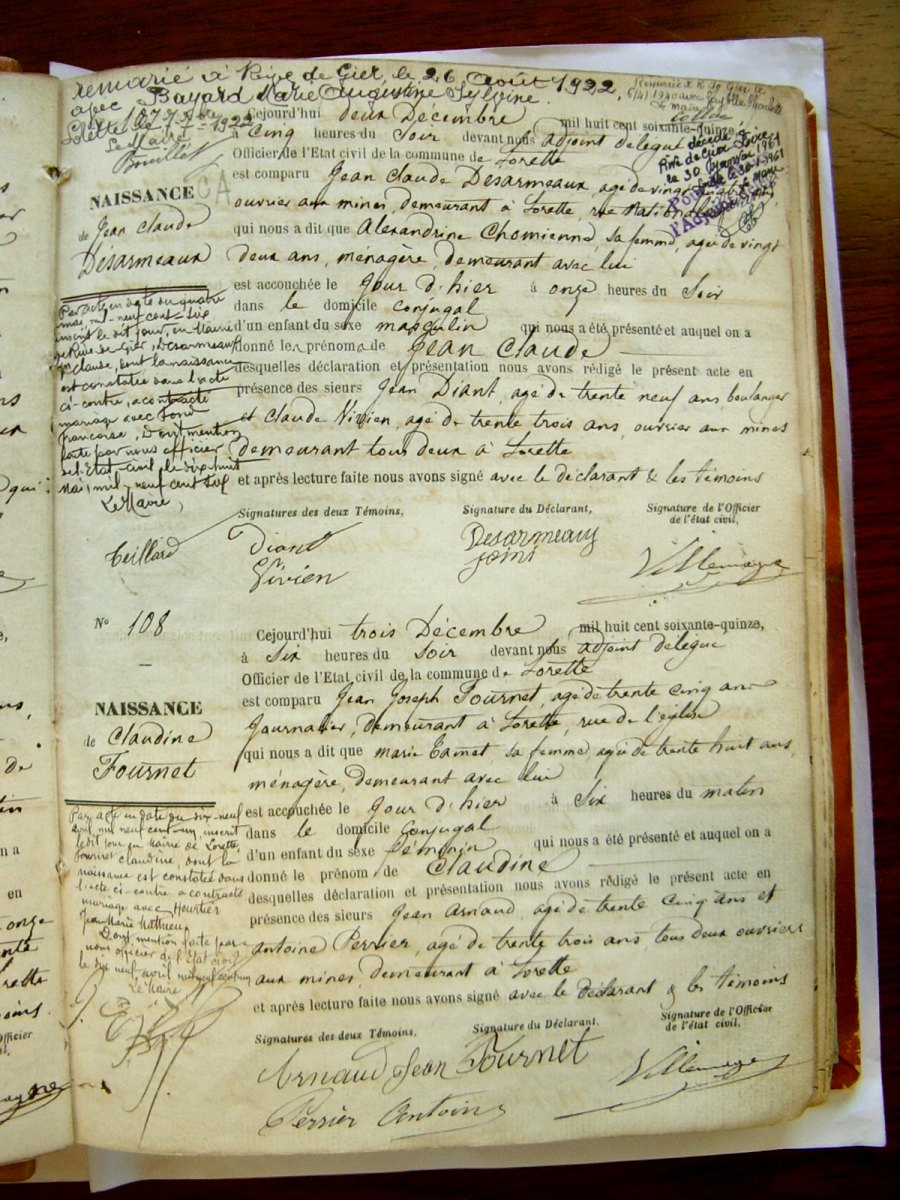 remarié à Rive de Gier, le 26 Août 1922,
avec Bayard Marie Augustine Sylvine.
Lorette le
1922
Le Maire
Remarié à R. de Gier le
1940 avec
Le Maire
décédé à
Rive de Gier Loire
le 30 Janvier 1961
NAISSANCE
de Jean Claude
Désarmeaux
Cejourd'hui deux Décembre mil huit cent soixante-quinze,
à Cinq heures du Soir devant nous adjoint délégué
Officier de l'Etat civil de la commune de Lorette
est comparu Jean Claude Désarmeaux, agé de vingt
ouvrier aux mines, demeurant à Lorette, rue Nationale
qui nous a dit que Alexandrine Chomienne, sa femme, agée de vingt
deux ans, ménagère, demeurant avec lui
est accouchée le Jour d'hier à onze heures du Soir
dans le domicile conjugal
d'un enfant du sexe masculin qui nous a été présenté et auquel on a
donné les prénoms de Jean Claude
desquelles déclaration et présentation nous avons rédigé le présent acte en
présence des sieurs Jean Diant, agé de trente neuf ans, boulanger
et Claude Vivien, agé de trente trois ans, ouvrier aux mines
demeurant tous deux à Lorette
et après lecture faite nous avons signé avec le déclarant & les témoins
Par acte en date du quatre
mai, mil-neuf-cent-six
inscrit le dit jour, en Mairie
de Rive de Gier, Désarmeaux
Jn Claude, dont la naissance
est constatée dans l'acte
ci-contre, a contracté
mariage avec Fond
Françoise, Dont mention
faite par nous officier
de l'Etat-civil, le dix-huit
Mai, mil-neuf cent six
Le Maire,
Teillard
Signatures des deux Témoins,
Signature du Déclarant,
Signature de l'Officier
de l'état civil,
Diant
Vivien
Desarmeaux
Villemagne
No 108
NAISSANCE
de Claudine
Fournet
Cejourd'hui trois Décembre mil huit cent soixante-quinze,
à Six heures du Soir devant nous adjoint délégué
Officier de l'Etat civil de la commune de Lorette
est comparu Jean Joseph Fournet, agé de trente cinq ans
Journalier, demeurant à Lorette, rue de l'église
qui nous a dit que marie sa femme, agée de trente huit ans,
ménagère, demeurant avec lui
est accouchée le Jour d'hier à Six heures du matin
dans le domicile Conjugal
d'un enfant du sexe féminin qui nous a été présenté et auquel on a
donné le prénom de Claudine
desquelles déclaration et présentation nous avons rédigé le présent acte en
présence des sieurs Jean Arnaud, agé de trente cinq ans et
antoine Perrier, agé de trente trois ans, tous deux ouvriers
aux mines, demeurant à Lorette
et après lecture faite nous avons signé avec le déclarant & les témoins
Par acte en date du dix-neuf
avril mil neuf cent-un, inscrit
le dit jour en Mairie de Lorette,
Fournet Claudine, dont la
naissance est constatée dans
l'acte ci-contre a contracté
mariage avec Heurtier
Jean Marie Mathieu,
Dont mention faite par
nous officier de l'Etat civil
le dix neuf avril mil neuf cent un
Le Maire
Signatures des deux Témoins,
Signature du Déclarant,
Signature de l'Officier
de l'état civil,
Arnaud Jean Fournet
Villemagne
Perrier Antoine